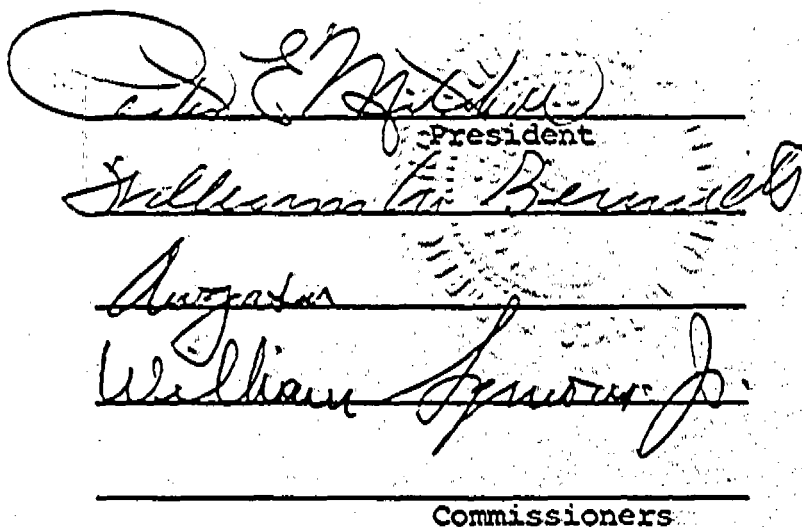 E. Mitchell
President
William M. Bennett
William Seymour Jr.
Commissioners